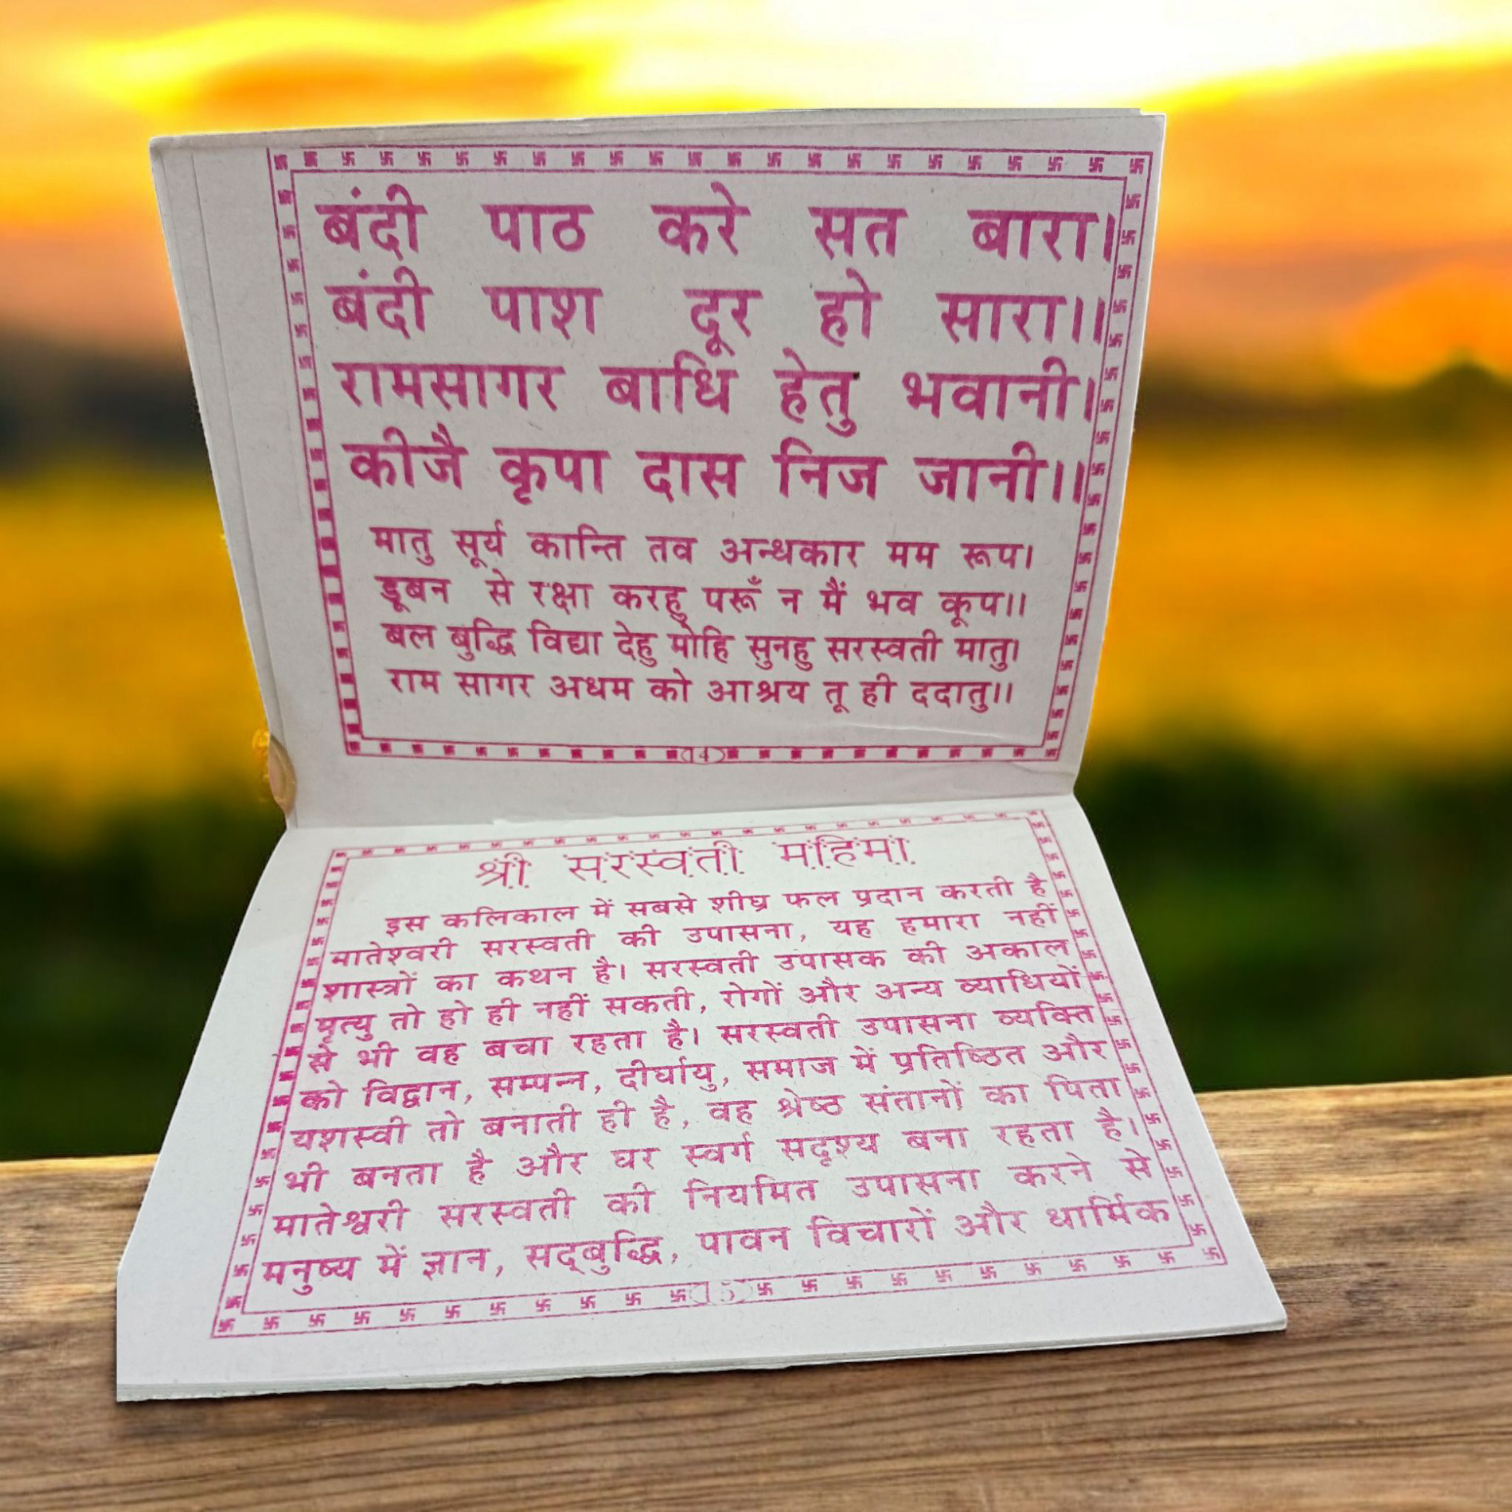 बंदी पाठ करे सत बारा।
बंदी पाश दूर हो सारा।।
रामसागर बाधि हेतु भवानी।
कीजै कृपा दास निज जानी।।
मातु सूर्य कान्ति तव अन्धकार मम रूप।
डूबन से रक्षा करहु परूँ न मैं भव कूप।।
बल बुद्धि विद्या देहु मोहि सुनहु सरस्वती मातु।
राम सागर अधम को आश्रय तू ही ददातु।।
(14)
श्री सरस्वती महिमा
इस कलिकाल में सबसे शीघ्र फल प्रदान करती है
मातेश्वरी सरस्वती की उपासना, यह हमारा नहीं
शास्त्रों का कथन है। सरस्वती उपासक की अकाल
मृत्यु तो हो ही नहीं सकती, रोगों और अन्य व्याधियों
से भी वह बचा रहता है। सरस्वती उपासना व्यक्ति
को विद्वान, सम्पन्न, दीर्घायु, समाज में प्रतिष्ठित और
यशस्वी तो बनाती ही है, वह श्रेष्ठ संतानों का पिता
भी बनता है और घर स्वर्ग सदृश्य बना रहता है।
मातेश्वरी सरस्वती की नियमित उपासना करने से
मनुष्य में ज्ञान, सद्बुद्धि, पावन विचारों और धार्मिक
(15)